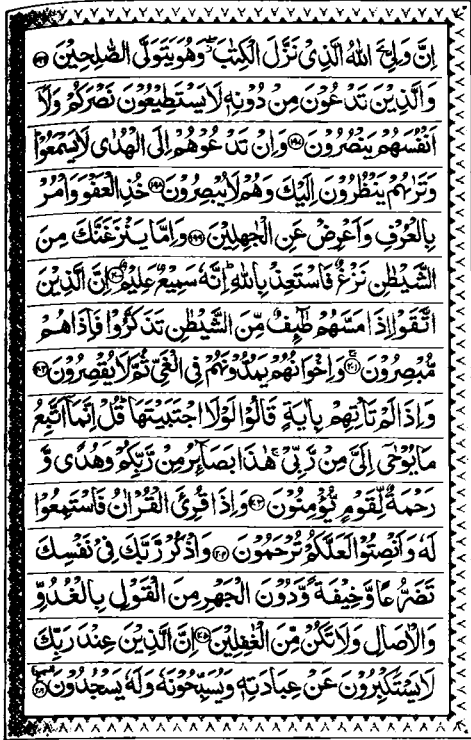 اِنَّ وَلِیِّ ﰯ اللّٰهُ الَّذِیْ نَزَّلَ الْكِتٰبَ ۖ وَهُوَ یَتَوَلَّی الصّٰلِحِیْنَ ۝۱۹۶
وَالَّذِیْنَ تَدْعُوْنَ مِنْ دُوْنِهٖ لَا یَسْتَطِیْعُوْنَ نَصْرَكُمْ وَلَاۤ
اَنْفُسَهُمْ یَنْصُرُوْنَ ۝۱۹۷ وَاِنْ تَدْعُوْهُمْ اِلَی الْهُدٰی لَا یَسْمَعُوْا ؕ
وَتَرٰىهُمْ یَنْظُرُوْنَ اِلَیْكَ وَهُمْ لَا یُبْصِرُوْنَ ۝۱۹۸ خُذِ الْعَفْوَ وَاْمُرْ
بِالْعُرْفِ وَاَعْرِضْ عَنِ الْجٰهِلِیْنَ ۝۱۹۹ وَاِمَّا یَنْزَغَنَّكَ مِنَ
الشَّیْطٰنِ نَزْغٌ فَاسْتَعِذْ بِاللّٰهِ ؕ اِنَّهٗ سَمِیْعٌ عَلِیْمٌ ۝۲۰۰ اِنَّ الَّذِیْنَ
اتَّقَوْا اِذَا مَسَّهُمْ طٰٓىِٕفٌ مِّنَ الشَّیْطٰنِ تَذَكَّرُوْا فَاِذَا هُمْ
مُّبْصِرُوْنَ ۝۲۰۱ وَاِخْوَانُهُمْ یَمُدُّوْنَهُمْ فِی الْغَیِّ ثُمَّ لَا یُقْصِرُوْنَ ۝۲۰۲
وَاِذَا لَمْ تَاْتِهِمْ بِاٰیَةٍ قَالُوْا لَوْلَا اجْتَبَیْتَهَا ؕ قُلْ اِنَّمَاۤ اَتَّبِعُ
مَا یُوْحٰۤی اِلَیَّ مِنْ رَّبِّیْ ۚ هٰذَا بَصَآىِٕرُ مِنْ رَّبِّكُمْ وَهُدًی وَّ
رَحْمَةٌ لِّقَوْمٍ یُّؤْمِنُوْنَ ۝۲۰۳ وَاِذَا قُرِئَ الْقُرْاٰنُ فَاسْتَمِعُوْا
لَهٗ وَاَنْصِتُوْا لَعَلَّكُمْ تُرْحَمُوْنَ ۝۲۰۴ وَاذْكُرْ رَّبَّكَ فِیْ نَفْسِكَ
تَضَرُّعًا وَّخِیْفَةً وَّدُوْنَ الْجَهْرِ مِنَ الْقَوْلِ بِالْغُدُوِّ
وَالْاٰصَالِ وَلَا تَكُنْ مِّنَ الْغٰفِلِیْنَ ۝۲۰۵ اِنَّ الَّذِیْنَ عِنْدَ رَبِّكَ
لَا یَسْتَكْبِرُوْنَ عَنْ عِبَادَتِهٖ وَیُسَبِّحُوْنَهٗ وَلَهٗ یَسْجُدُوْنَ ۝۲۰۶